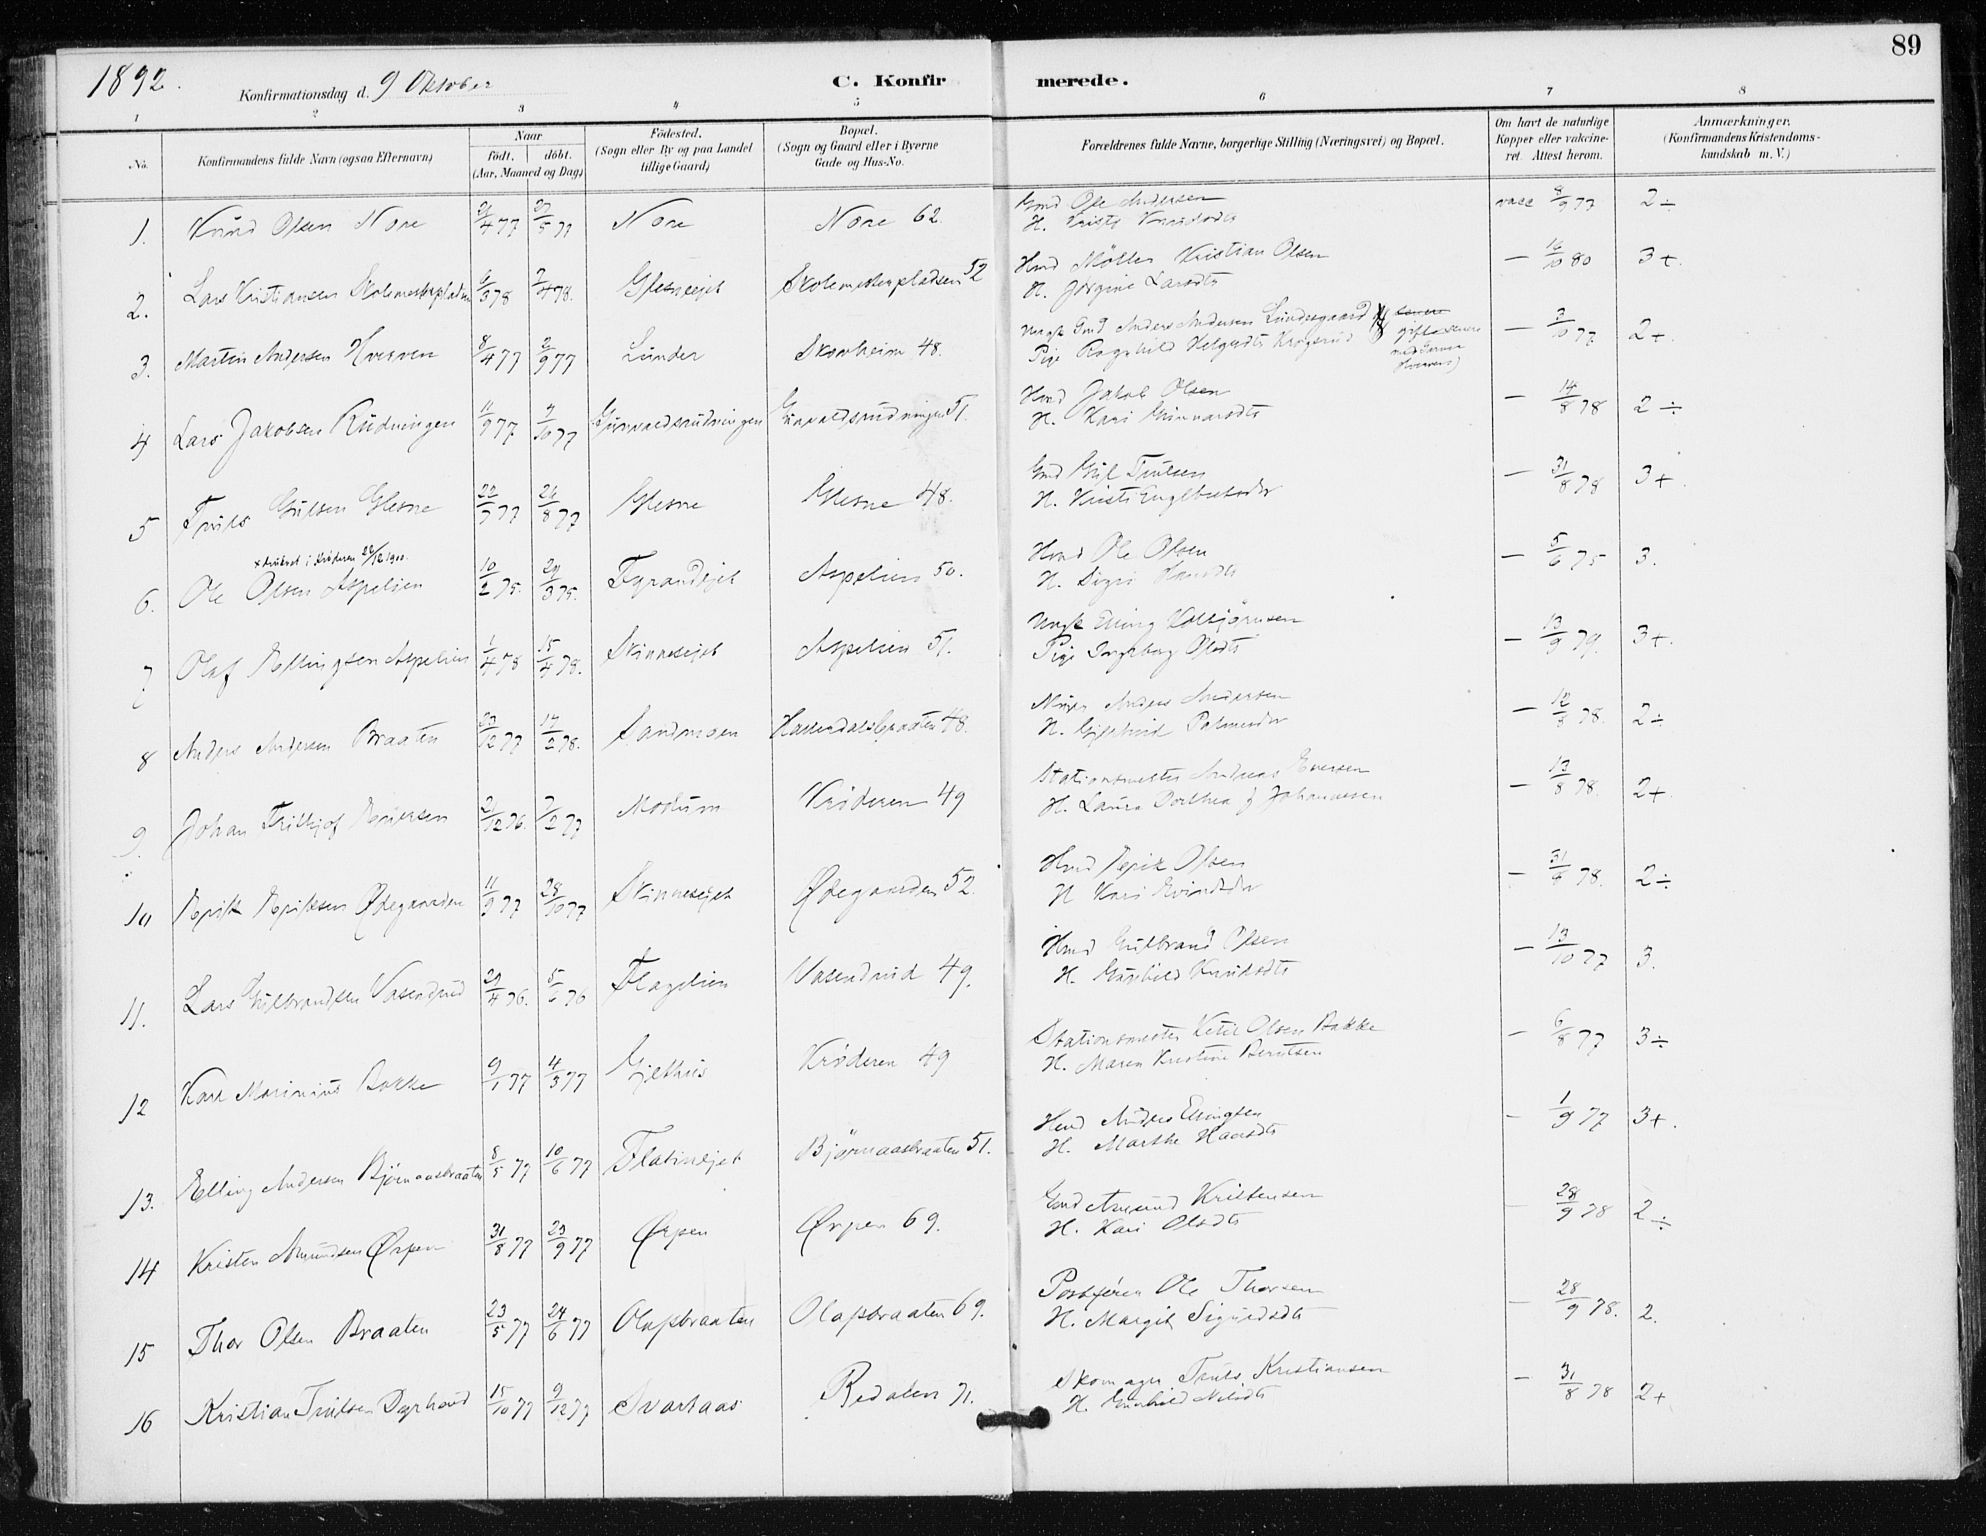 89
1892.
Konfirmationsdag d. 9 Oktober
C. Konfir merede.
1 2 3 4 5 6 7 8
No.
Konfirmandens fulde Navn (ogsaa Efternavn)
Naar
født. døbt.
(Aar, Maaned og Dag)
Fødested.
(Sogn eller By og paa Landet
tillige Gaard)
Bopæl.
(Sogn og Gaard eller i Byerne
Gade og Hus-No.
Forældrenes fulde Navne, borgerlige Stilling (Næringsvei) og Bopæl.
Om havt de naturlige
Kopper eller vakcine-
ret. Attest herom.
Anmærkninger.
(Konfirmandens Kristendoms-
kundskab m. V.)
1. Knud Olsen Nore /4 77 /5 77 Nore Nore 62. Gmd Ole Andersen vacc 8/9 77 2÷
H. Kristi Knudsdtr
2. Lars Kristiansen Skolemesterpladsen /3 78 /4 78. Glesneejet Skolemesterpladsen 52 Hmd Møller Kristian Olsen — 16/10 80 3+.
H. Jørgine Larsdtr
3. Martin Andersen Hverven 8/4 77 2/9 77 Lunder Skovheim 48. Ungk Gmd Anders Andersen Lundesgaard — 3/10 77 2+.
Pige Ragnhild Helgesdtr gift senere
4 Lars Jakobsen Rudningen 11/9 77 /10 77 Gunvaldsrudningen Gunvaldsrudningen 51. Hmd Jakob Olsen — 14/8 78 2÷
H. Kari Gunvarsdtr
5 Truls Gulsen Glesne 22/ 77 26/8 77 Glesne Glesne 48. Gmd Gul Trulsen — 31/8 78 3+.
H. Kristi Engelbretsdtr
+ druknet i Krøderen 22/12 1900.
6. Ole Olsen Aspelien 10/2 75. 29/3 75. Aspelien 50. Hmd Ole Olsen — 5/6 75 3.
H. Sigri
7 Olaf Ellingsen Aspelien 1/4 78 15/4 78. Skinnesejet Aspelien 51. Ungk Elling Kolbjørnsen — 13/9 79. 3+.
Pige Ingeborg Olsdtr
8 Anders Andersen Braaten 23/12 77 17/2 78. Sandmoen 48. Anders Andersen — 12/8 78. 2÷
H.
9. Johan Frithjof Eversen 21/12 76. /2 77 Modum Krøderen 49 Stationsmester Andreas Eversen — 13/8 78. 2+.
H. Laura Dorthea f. Johannesen
10 Erik Eriksen Ødegaarden 11/9 77 28/10 77 Skinnesejet Ødegaarden 52 Hmd Erik Olsen — 31/8 78. 2÷
H Kari Eivindsdtr
11. Lars Gulbrandsen Vasendrud 29/4 76. 5/6 76 Flagelien Vasendrud 49. Hmd Gulbrand Olsen — 13/10 77 3.
H. Gunhild Knudsdtr
12 Karl Marinius Bakke 9/1 77 4/3 77 Gjethus Krøderen 49 Stationsmester Ketil Olsen Bakke — 6/8 77 3÷
H. Maren Kristine Berntsen
13. Elling Andersen Bjørnaasbraaten 8/5 77 10/6 77 Flatinejet Bjørnaasbraaten 51. Hmd Anders Ellingsen — 1/9 77 3+.
H. Marthe Hansdtr
14 Kristen Amundsen Ørpen 31/8 77 23/9 77 Ørpen Ørpen 69. Gmd Amund Kristensen — 28/9 78 2÷
H. Kari Olsdtr
15 Thor Olsen Braaten 23/5 77 24/6 77 Olafsbraaten Olafsbraaten 69. Postfører Ole Thorsen — 28/9 78. 2.
H. Margit Sigurdsdtr
16 Kristian Trulsen Dyrhoud 15/10 77 9/12 77 Svartaas Redalen 71. Skomager Truls Kristiansen — 31/8 78 2+
H. Gunhild Nilsdtr